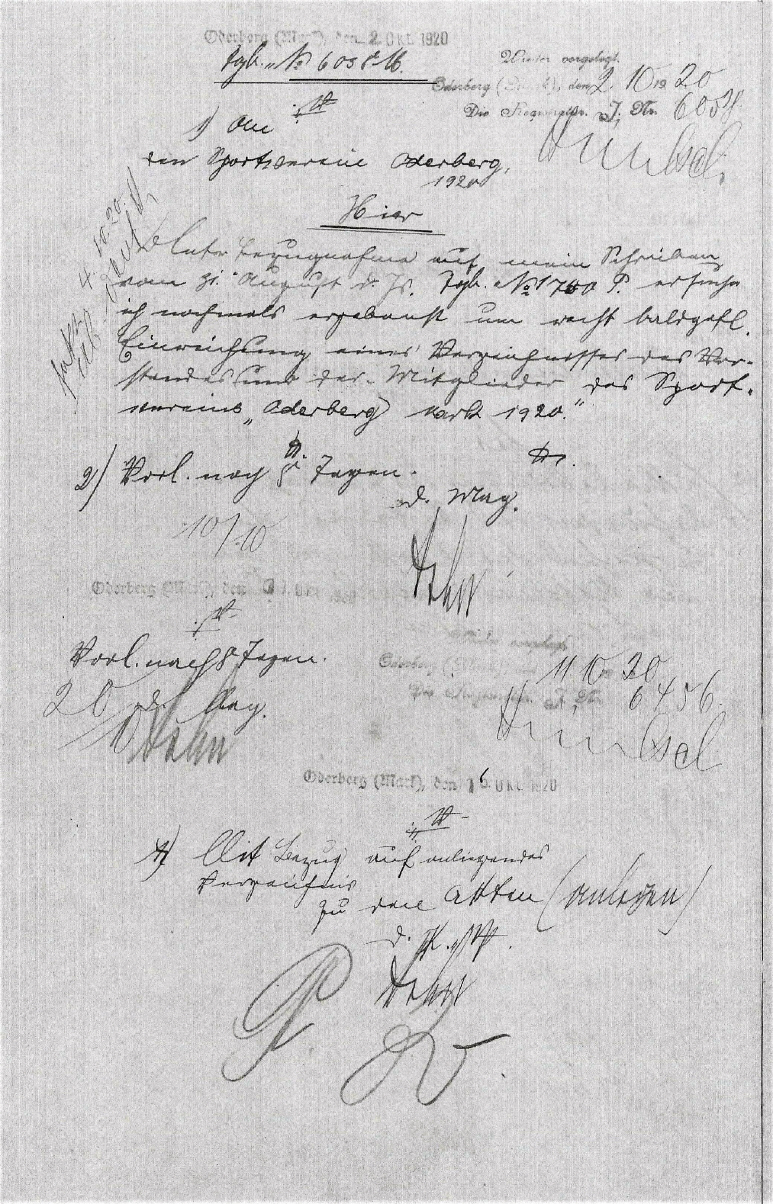 Oderberg (Mark), den 2. Okt. 1920
Tgb. № 6058
Wieder vorgelegt.
Oderberg (Mark), den 2. 10 1920
Die Registratur. J. Nr. 6058
1) An
den Sportverein Oderberg,
1920
Hier
Unter Bezugnahme auf mein Schreiben
vom 31. August d. Js. Tgb. № 1700 P. ersuche
ich nochmals ergebenst um recht baldgefl.
Einreichung eines Verzeichnisses des Vor-
standes und der Mitglieder des Sport-
vereins „Oderberg Mark 1920."
2) Vorl. nach 8 Tagen.
d. Mag.
10/10
Oderberg (Mark), den Okt. 1920
Vorl. nach 8 Tagen.
d. Mag.
20/10
Wieder vorgelegt
Oderberg (Mark) 11 10 20
Die Registratur J. Nr. 6456.
Oderberg (Mark), den 16. Okt. 1920
1) Mit Bezug auf anliegendes
Verzeichnis
zu den Akten (anlegen)